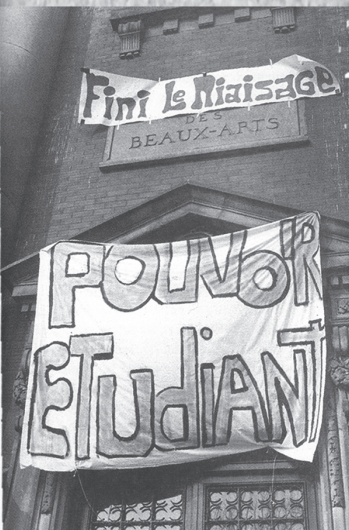 Fini le Niaisage
DES
BEAUX-ARTS
POUVOIR
ETUdiANT